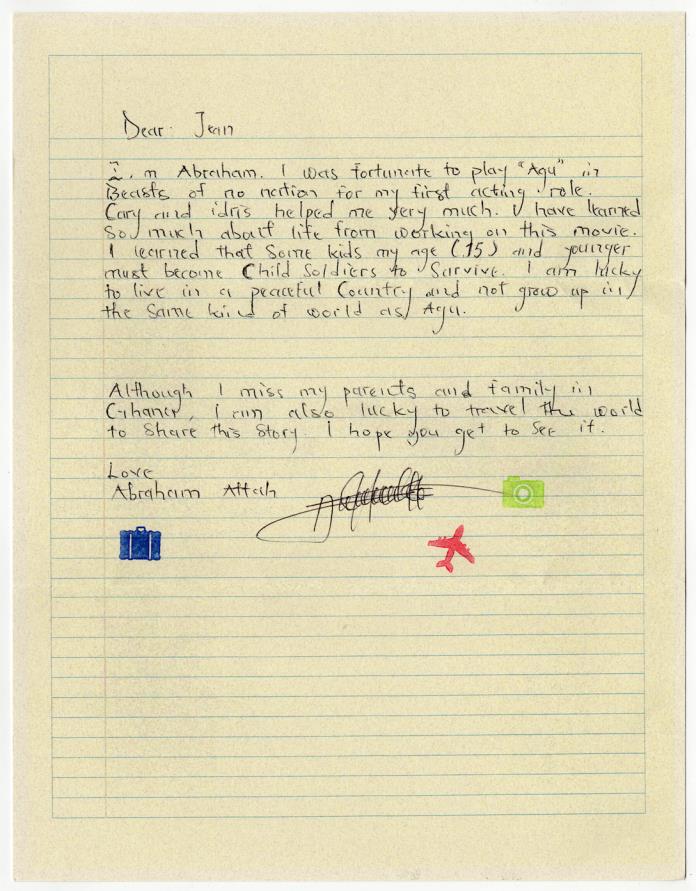 Dear Jean
I, m Abraham. I was fortunate to play "Agu" in
Beasts of no nation for my first acting role.
Cary and idris helped me very much. I have learned
So much about life from working on this movie.
I learned that Some kids my age (15) and younger
must become Child Soldiers to Survive. I am lucky
to live in a peaceful Country and not grow up in
the Same kind of world as Agu.
Although I miss my parents and family in
Ghana, I am also lucky to travel the world
to Share this Story. I hope you get to See it.
Love
Abraham Attah